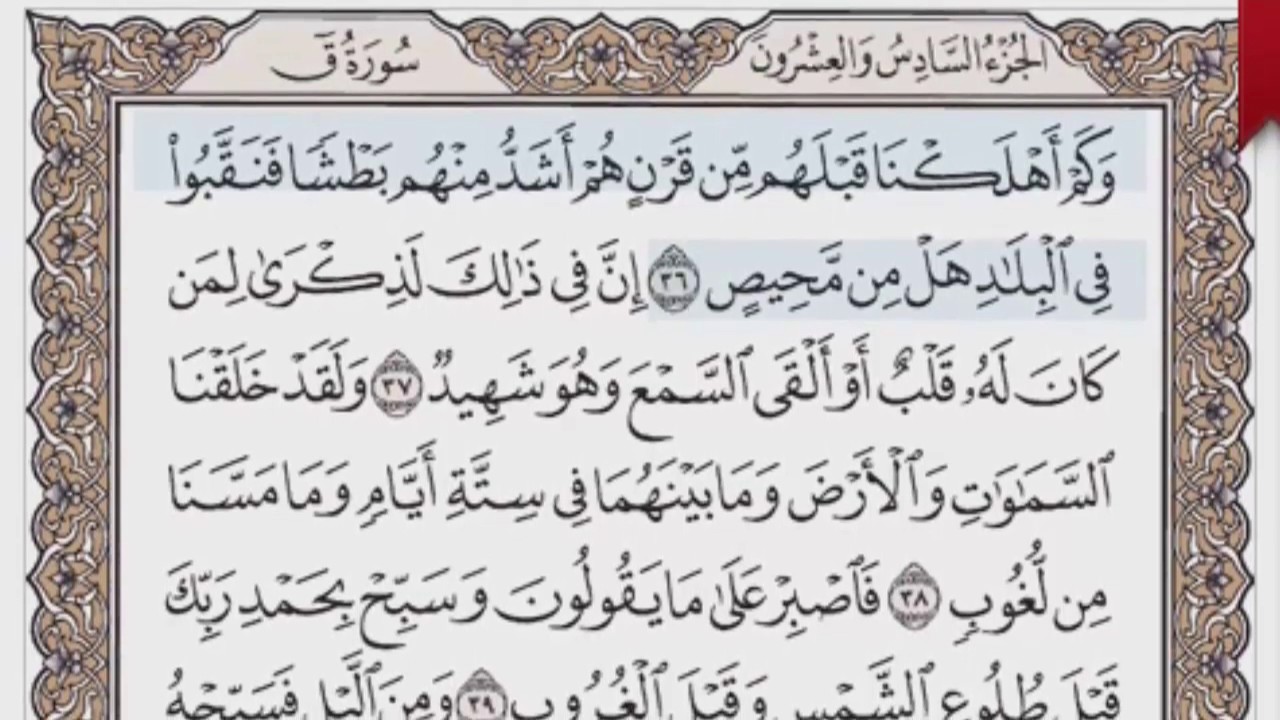 الجُزْءُ السَّادِسُ وَالعِشْرُونَ
سُورَةُ قٓ
وَكَمْ أَهْلَكْنَا قَبْلَهُم مِّن قَرْنٍ هُمْ أَشَدُّ مِنْهُم بَطْشًا فَنَقَّبُوا۟
فِى ٱلْبِلَـٰدِ هَلْ مِن مَّحِيصٍ ٣٦ إِنَّ فِى ذَٰلِكَ لَذِكْرَىٰ لِمَن
كَانَ لَهُۥ قَلْبٌ أَوْ أَلْقَى ٱلسَّمْعَ وَهُوَ شَهِيدٌ ٣٧ وَلَقَدْ خَلَقْنَا
ٱلسَّمَـٰوَٰتِ وَٱلْأَرْضَ وَمَا بَيْنَهُمَا فِى سِتَّةِ أَيَّامٍ وَمَا مَسَّنَا
مِن لُّغُوبٍ ٣٨ فَٱصْبِرْ عَلَىٰ مَا يَقُولُونَ وَسَبِّحْ بِحَمْدِ رَبِّكَ
قَبْلَ طُلُوعِ ٱلشَّمْسِ وَقَبْلَ ٱلْغُرُوبِ ٣٩ وَمِنَ ٱلَّيْلِ فَسَبِّحْهُ